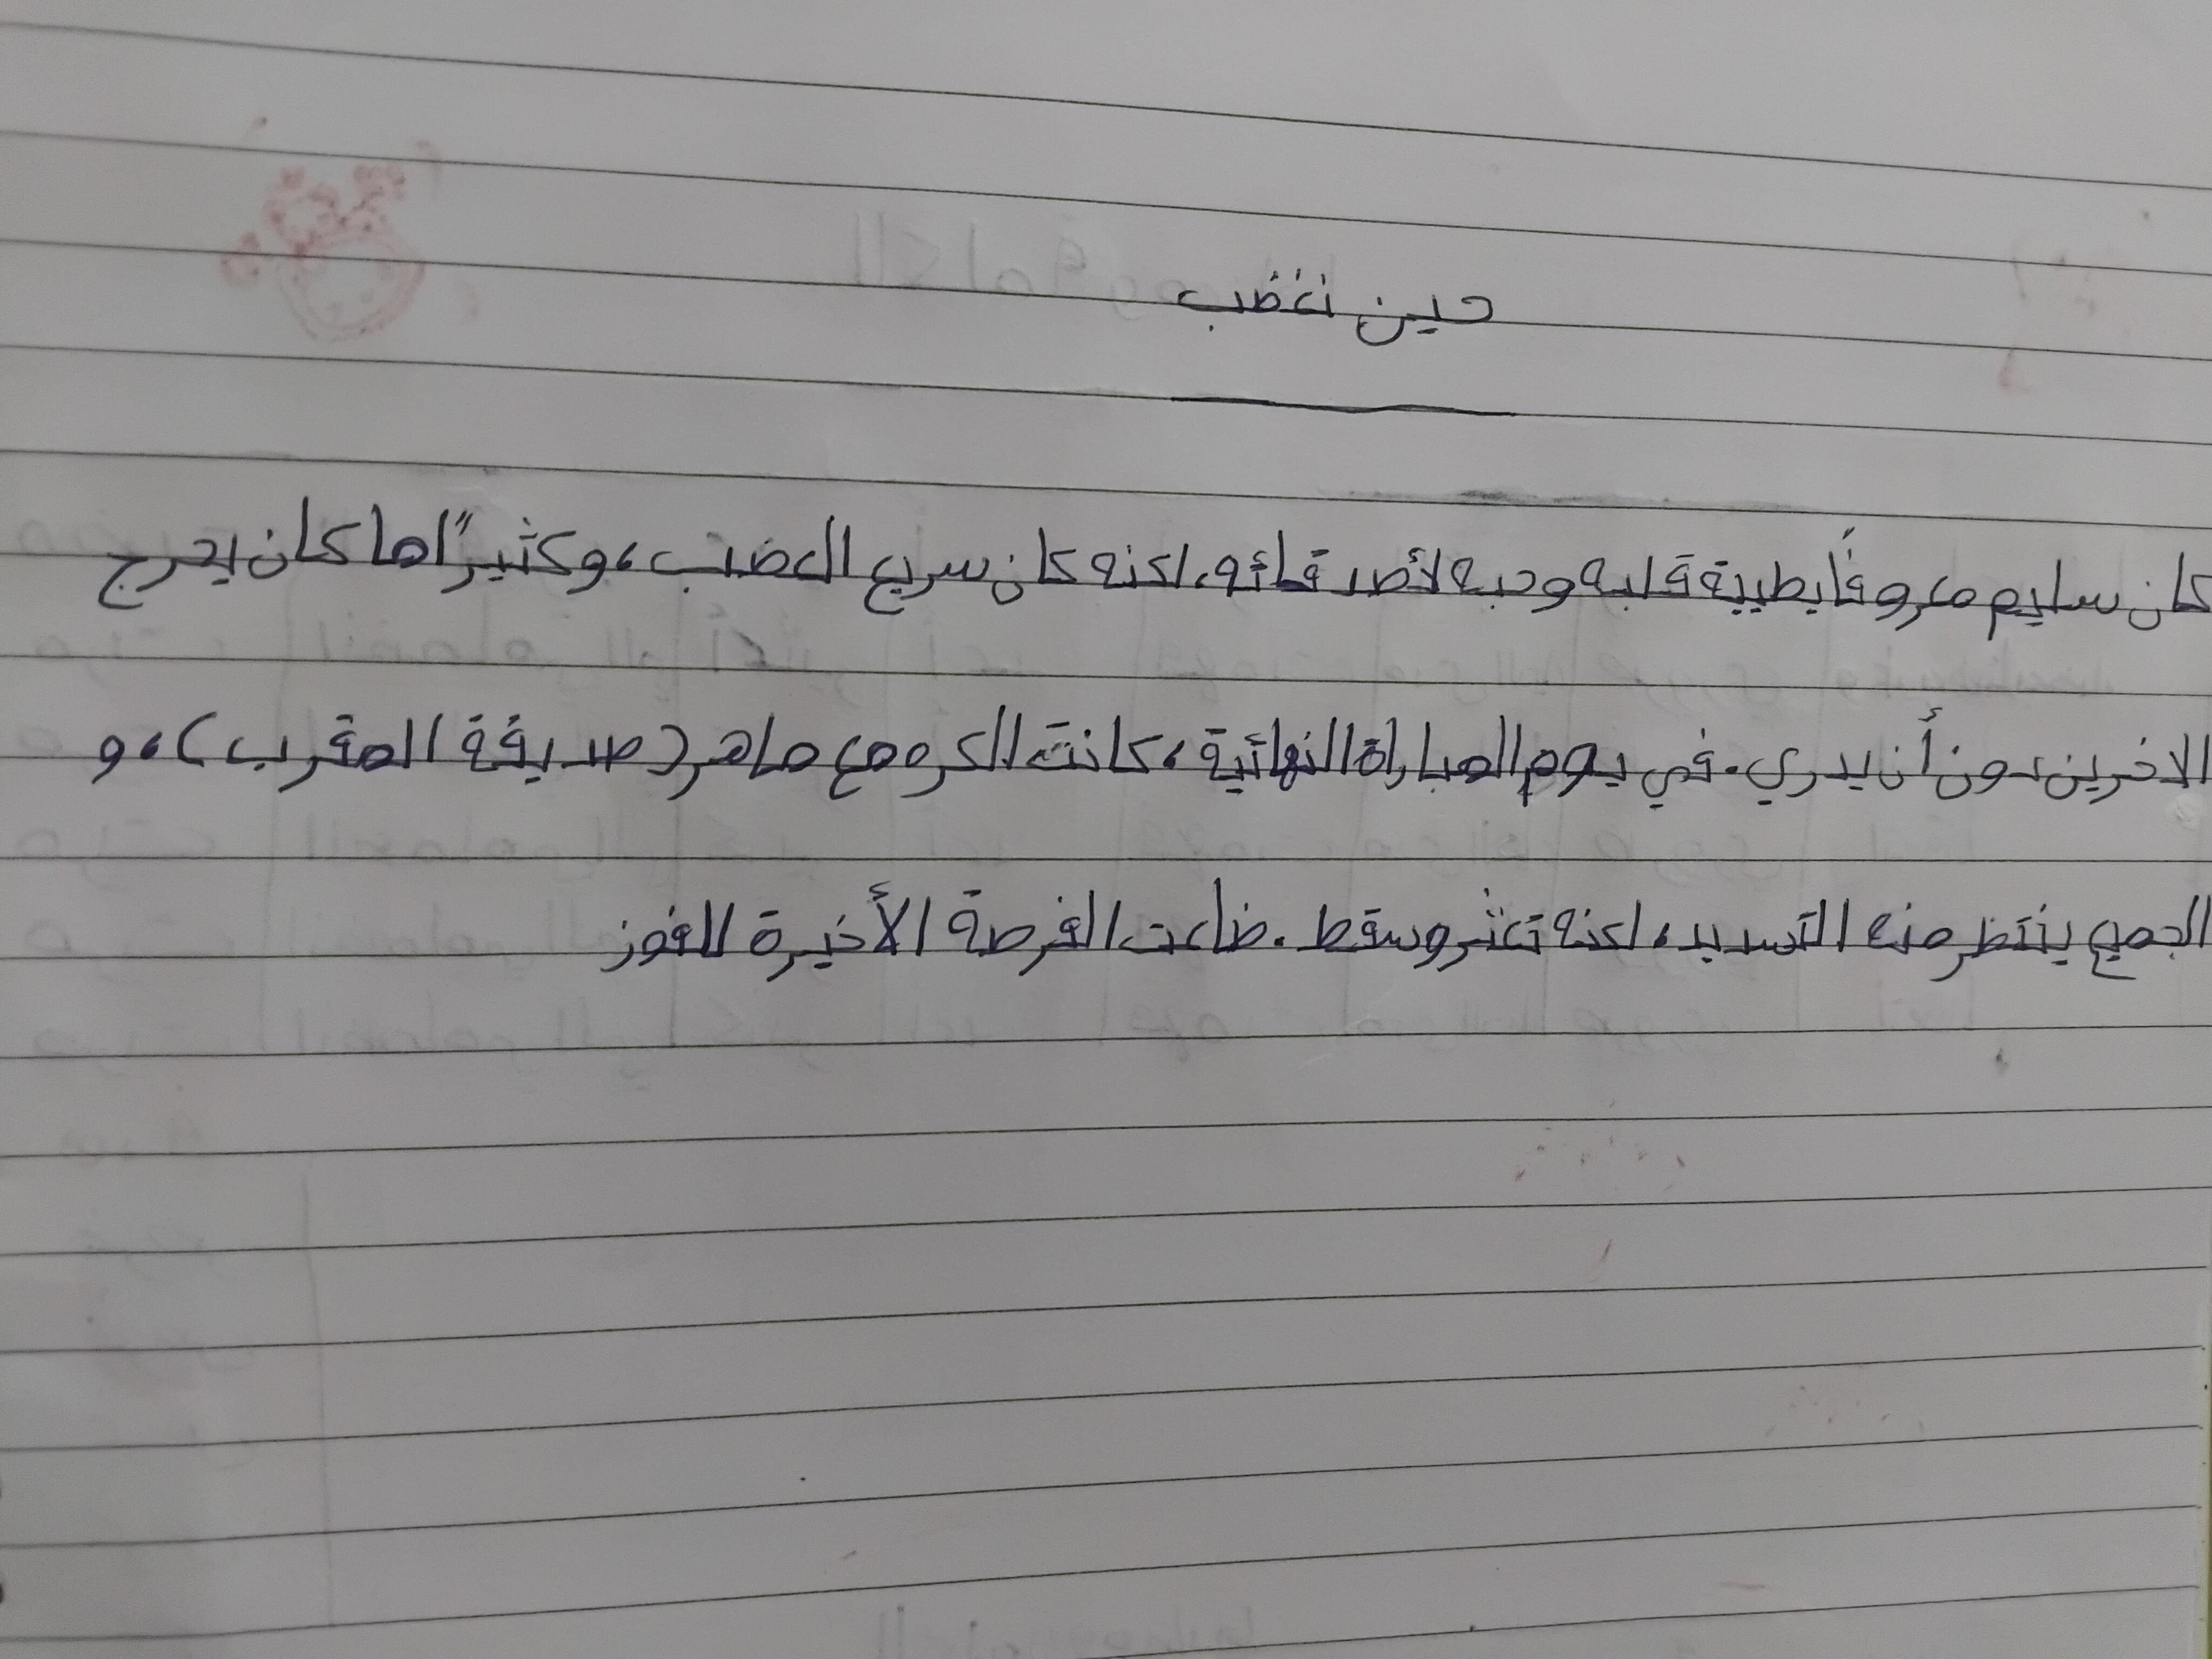 حين نغضب
كان سليم معروفًا بطيبة قلبه وحبه لأصدقائه، لكنه كان سريع الغضب، وكثيرًا ما كان يحرج
الاخرين دون أن يدري. في يوم المباراة النهائية، كانت الكره مع ماهر (صديقة المقرب)، و
الجميع ينتظر منه التسديد، لكنه تعثر وسقط. ضاعت الفرصة الأخيرة للفوز